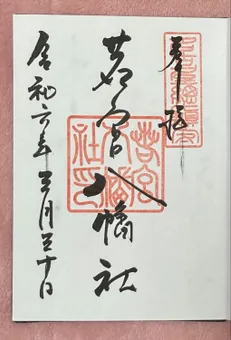 奉拝
若宮八幡社
若宮八幡社印
令和六年三月三十日